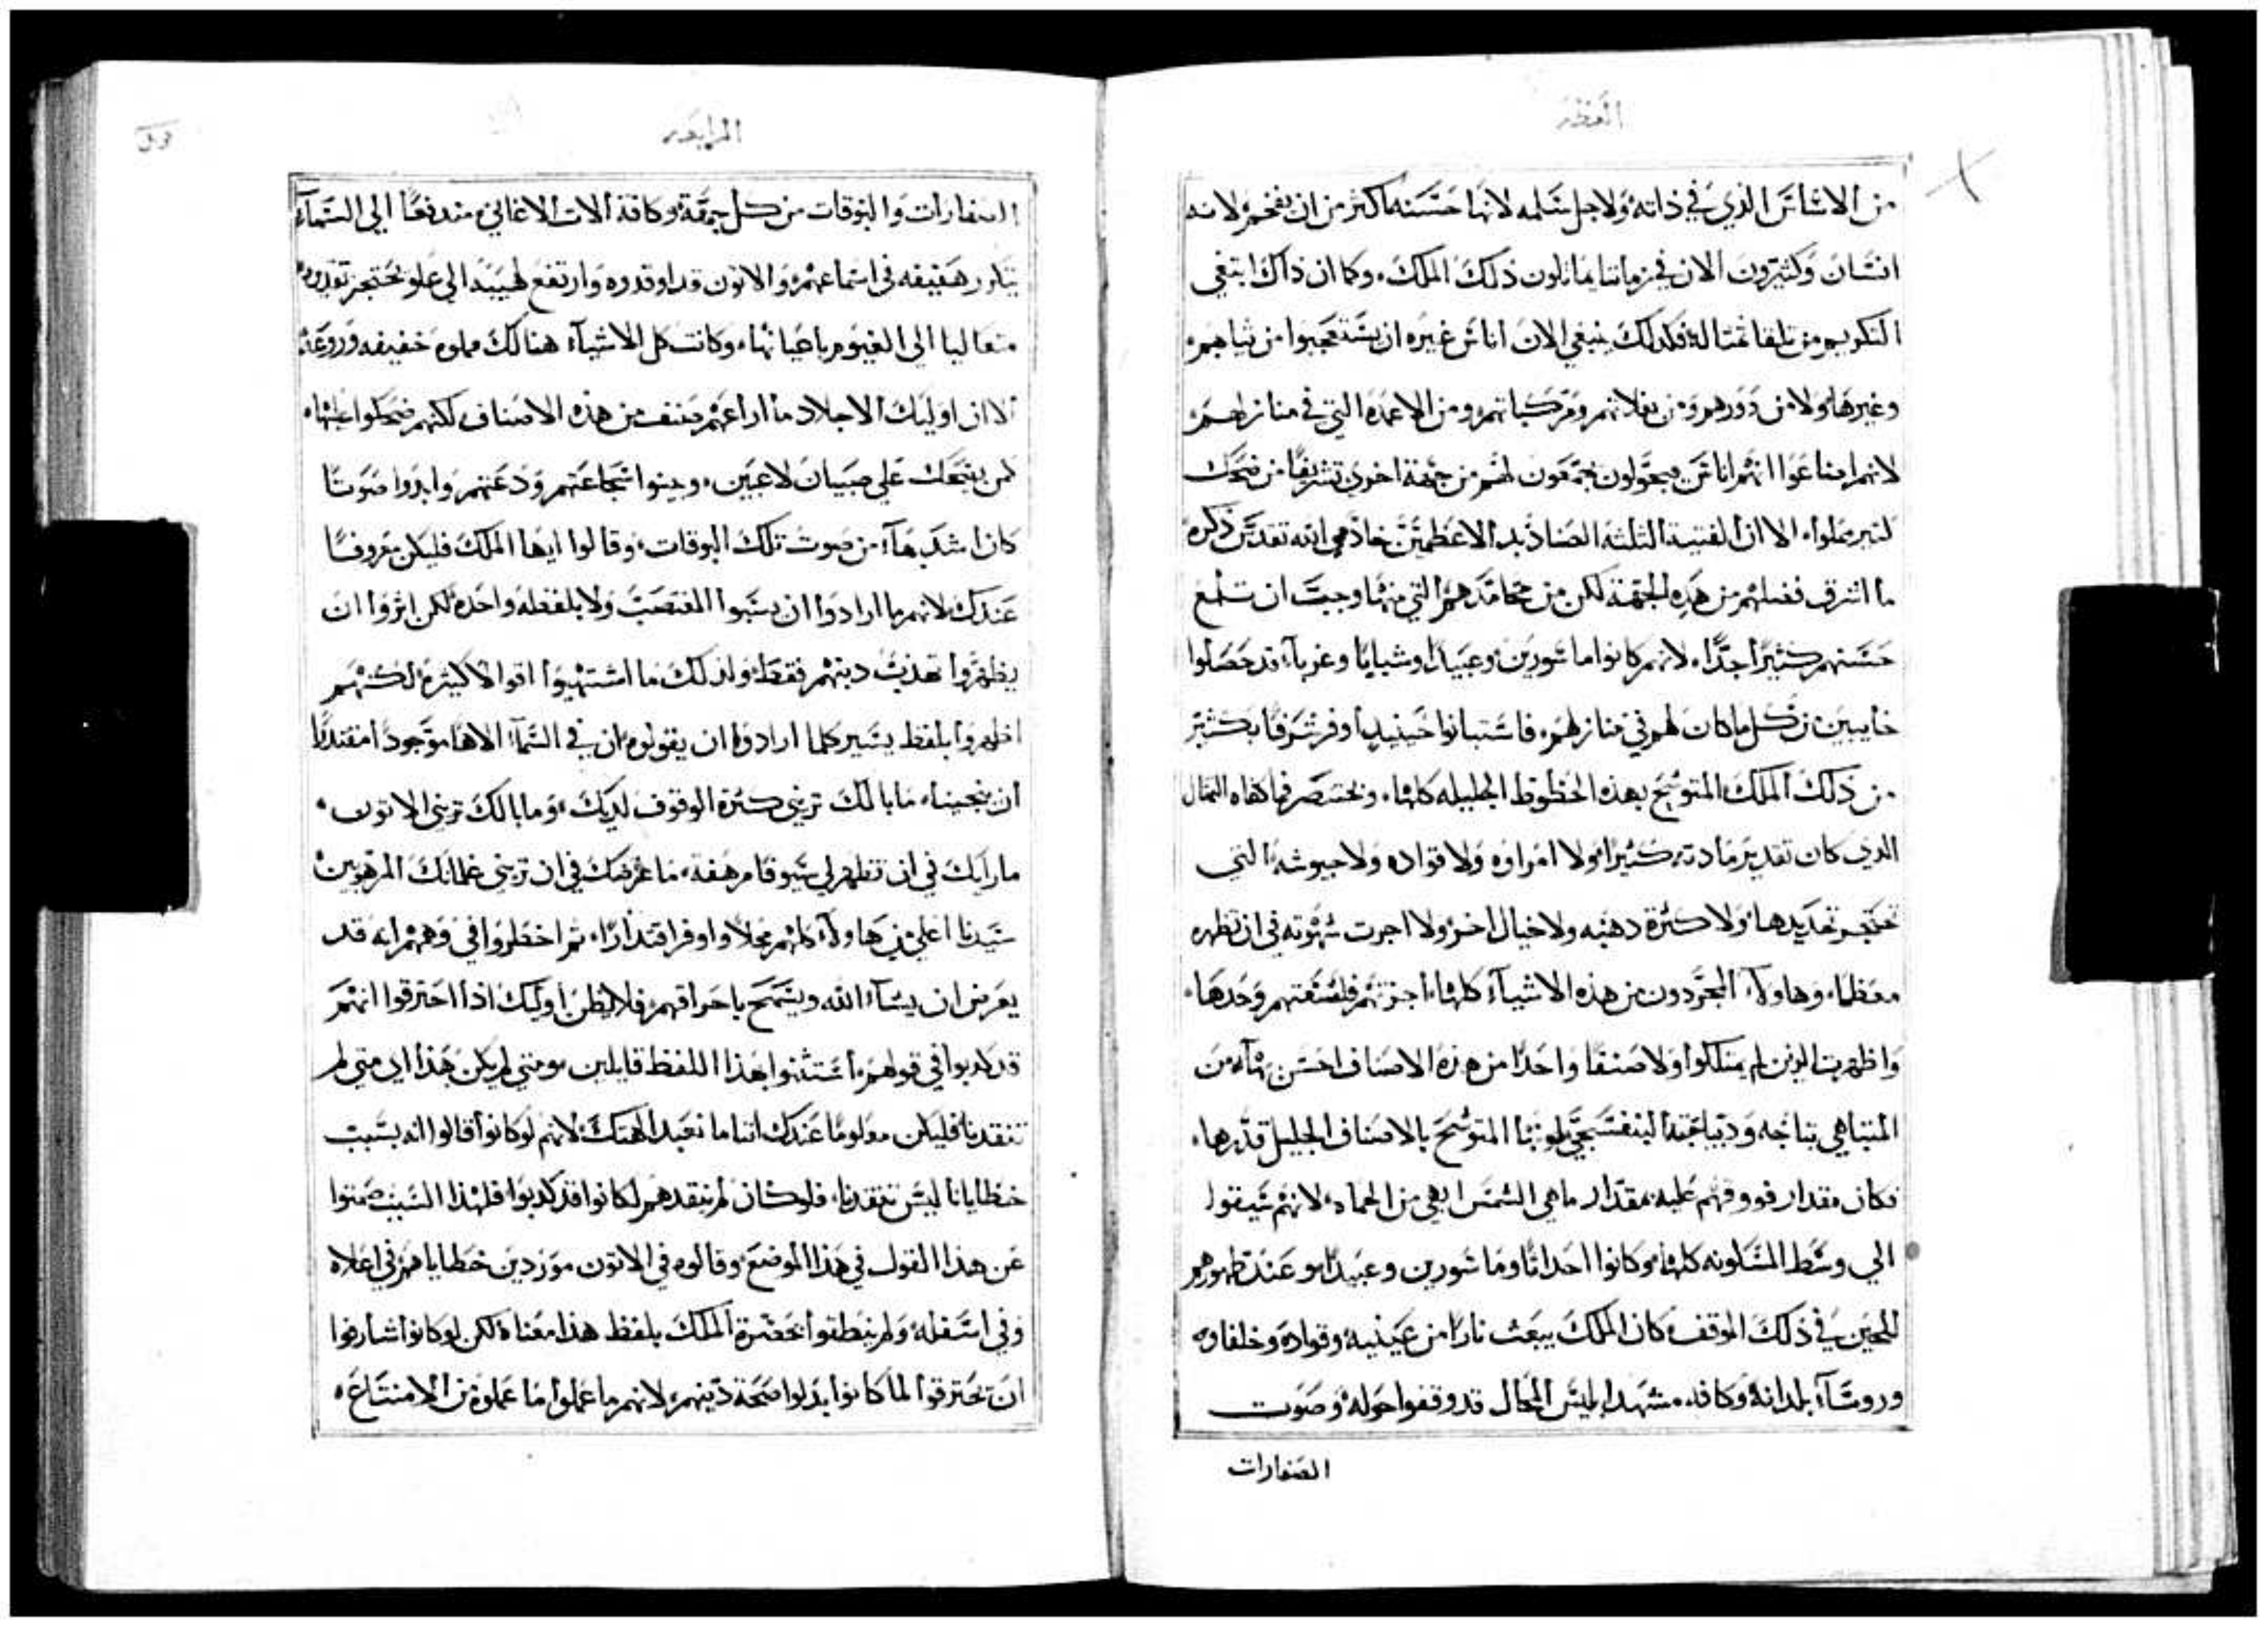 العظه
من الاشاش الذي في ذاته ولاجل شلمه لانها حسنه اكثر من ان تفخم لانه
انسان وكثيرون الان في زماننا يماثلون ذلك الملك، وكما ان ذاك ابتغي
التكريم من تلقا تمثاله فكذلك ينبغي الان اناش غيره ان يستعجبوا من ثيابهم
وغيرها ولا من دورهم ومن بغلاتهم ومركباتهم ومن الاعمده التي في منازلهم
لانهم اضاعوا انهم اناش يجولون يجمعون لهم من جهة اخري تشريفا من ضحك
كثير مملوا، الا ان الفتية الثلثة الصناديد الاعظمين خادمي الله تقدس ذكره
ما اشرق فضلهم من هذه الجهة لكن من محامدهم التي منها وجب ان تلمع
حسنهم كثيرا جدا، لانهم كانوا ماسورين وعبيدا وشبايا وغربا قد حصلوا
خايبين من كل ما كان لهم في منازلهم، فاستبانوا حينيذ اوفر شرفا بكثير
من ذلك الملك المتوشح بهذه الحظوظ الجليله كلها، ونختصر فما كفاه التمثال
الذي كان تقدير مادته كثيرا ولا امراوه ولا قواده ولا جيوشه التي
تحتجز تحديدها ولا كثرة دهبه ولا خيال اخر ولا اجرت شهوته في ان تظهره
معظما، وهاولاء المجردون من هذه الاشياء كلها اجزتهم فلسفتهم وحدها
واظهرت الذين لم يمتلكوا ولا صنفا واحدا من هذه الاصناف احسن بهآء من
المتباهي بتاجه وديباجته البنفسجي لونها المتوشح بالاصناف الجليل قدرها،
فكان مقدار فووقهم عليه مقدار ما هي الشمس ابهي من الحماه لانهم سيقوا
الي وسط المسكونه كلها وكانوا احداثا وماسورين وعبيدا وعند ظهورهم
للحين في ذلك الموقف كان الملك يبعث نارا من عينيه وقواده وخلفاوه
وروسآء بلدانه وكافة مشهد ابليس المحال قد وقفوا حوله وصوت
الصفارات
الرابعه
الصفارات والبوقات من كل جهة وكافة الات الاغاني مندفعا الي السمآء
هفيفه في اسماعهم والاتون قد اوقدوه وارتفع لهيبه الي علو تحتجز تقديره
متعاليا الي الغيوم باعيانها، وكانت كل الاشيآء هنالك مملوه خفيفه وروعة
الا ان اوليك الاجلاد ما اراعهم صنف من هذه الاصناف لكنهم ضحكوا عليها
كمن يضحك علي صبيان لاعبين، وبينوا شجاعتهم ودعتهم وابدوا صوتا
كان اشد بهآء من صوت تلك البوقات، وقالوا ايها الملك فليكن معروفا
عندك لانهم ما ارادوا ان يسبوا المغتصب ولا بلفظه واحده لكن اثروا ان
يظهروا تهذيب دينهم فقط، ولذلك ما اشتهيوا اقوالا كثيرة لكنهم
اظهروا بلفظ يسير كلما ارادوا ان يقولوه ان في السمآء الاها موجودا مقتدرا
ان ينجينا، ما بالك تريني كثرة الوقوف لديك، وما بالك تريني الاتون،
ما رايك في ان تظهر لي سيوفا مرهفة، ما غرضك في ان تريني غلمانك المرهبين
سيدنا اعلي من هاولآء كلهم محلا واوفر اقتدارا، ثم اخطروا في وهمهم انه قد
يعرض ان يشآء الله ويسمح باحراقهم فلا يظن اوليك اذا احترقوا انهم
قد كدبوا في قولهم، استثنوا بهذا اللفظ قايلين ومتي لم يكن هذا اي متي لم
تنقدنا فليكن معلوما عندك اننا ما نعبد الهتك لانهم لو كانوا قالوا انه بسبب
خطايانا ليس تنقدنا، فلو كان لم ينقدهم لكانوا قد كدبوا فلهذا السبب صمتوا
عن هذا القول في هذا الموضع وقالوه في الاتون موردين خطاياهم في اعلاه
وفي اسفله ولم ينطقوا بحضرة الملك بلفظ هذا معناه لكن لو كانوا شارفوا
ان يحترقوا لما كانوا بدلوا صحة دينهم، لانهم ما عملوا ما عملوه من الامتناع